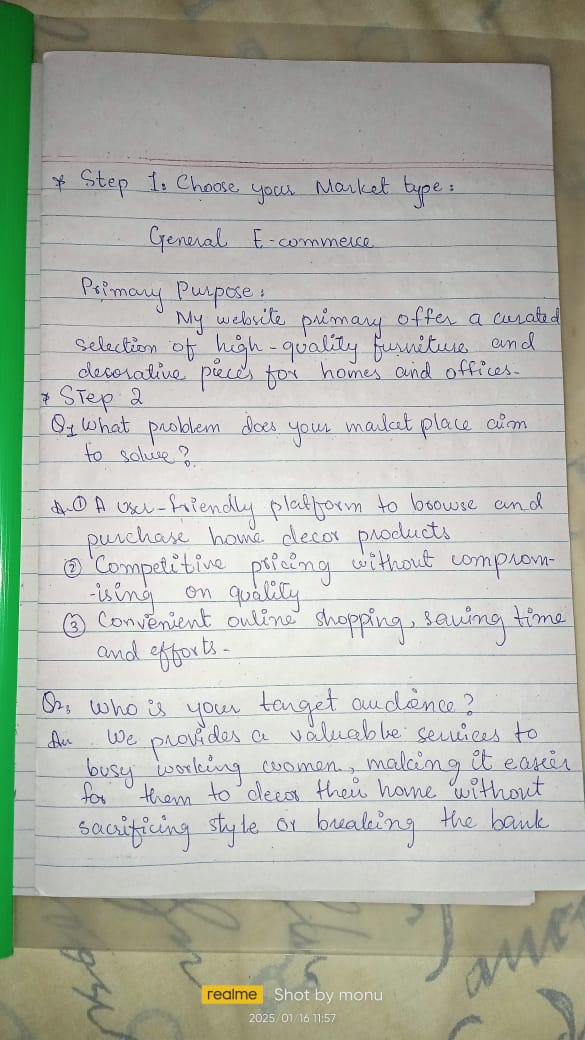 * Step 1: Choose your Market type:
General E-commerce
Primary Purpose:
My website primary offer a curated
selection of high-quality furniture and
decorative pieces for homes and offices.
* STEP 2
Q1 What problem does your market place aim
to solve?
A. ① A user-friendly platform to browse and
purchase home decor products
② Competitive pricing without comprom-
-ising on quality
③ Convenient online shopping, saving time
and efforts.
Q2, Who is your target audience?
An We provides a valuable services to
busy working women, making it easier
for them to decor their home without
sacrificing style or breaking the bank
realme Shot by monu
2025/01/16 11:57